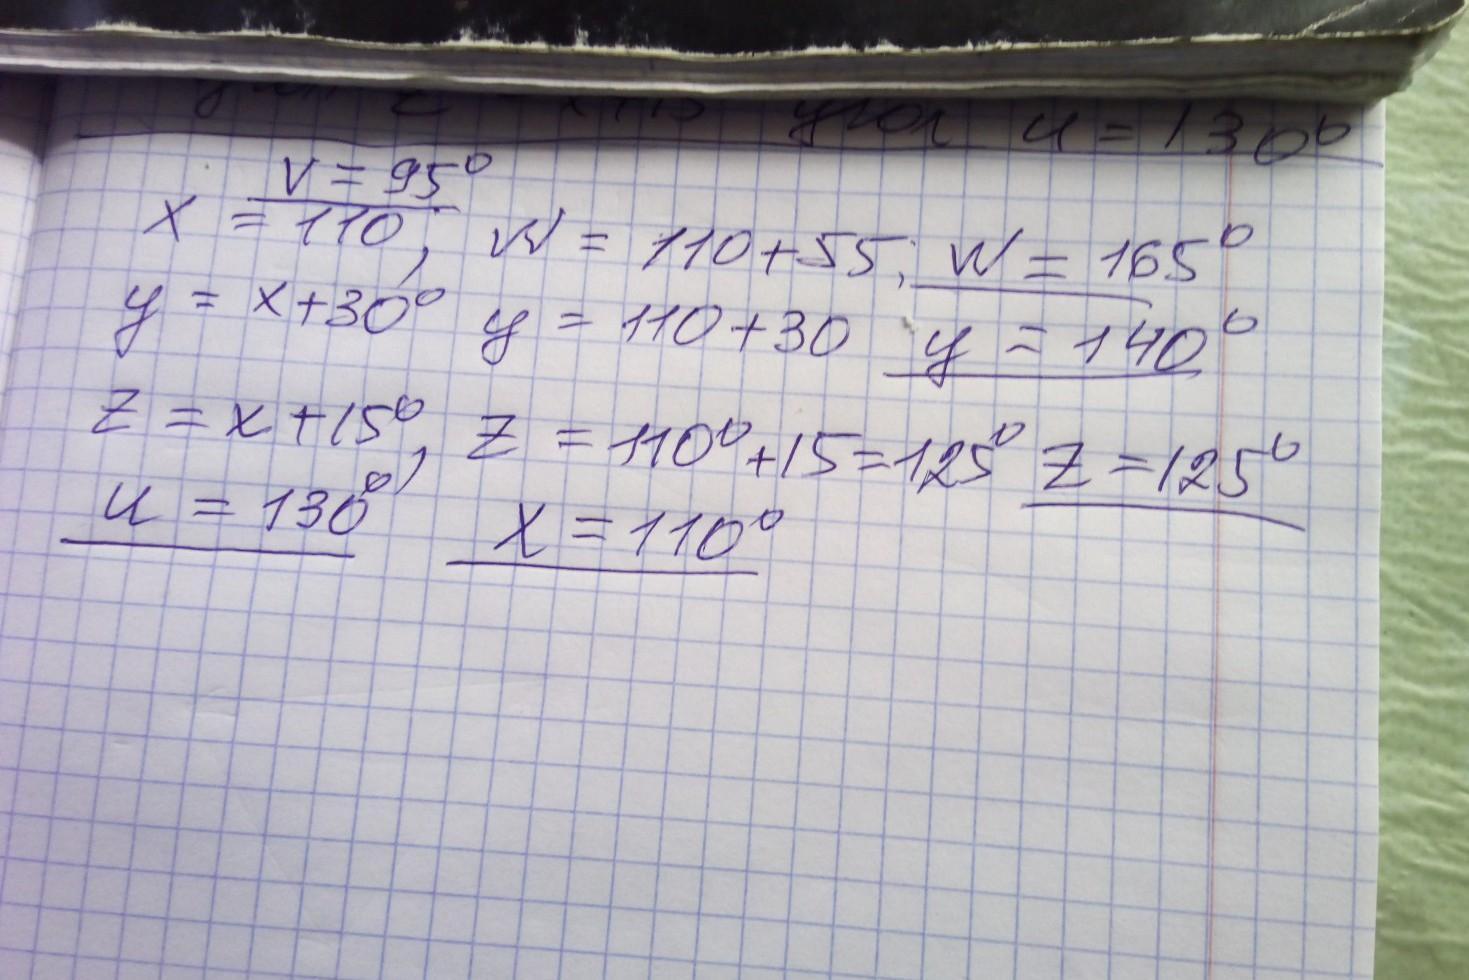 z = x+15 угол u = 130°
v = 95°
x = 110, w = 110+55; w = 165°
y = x+30° y = 110+30 y = 140°
z = x+15°, z = 110°+15=125° z = 125°
u = 130° x = 110°